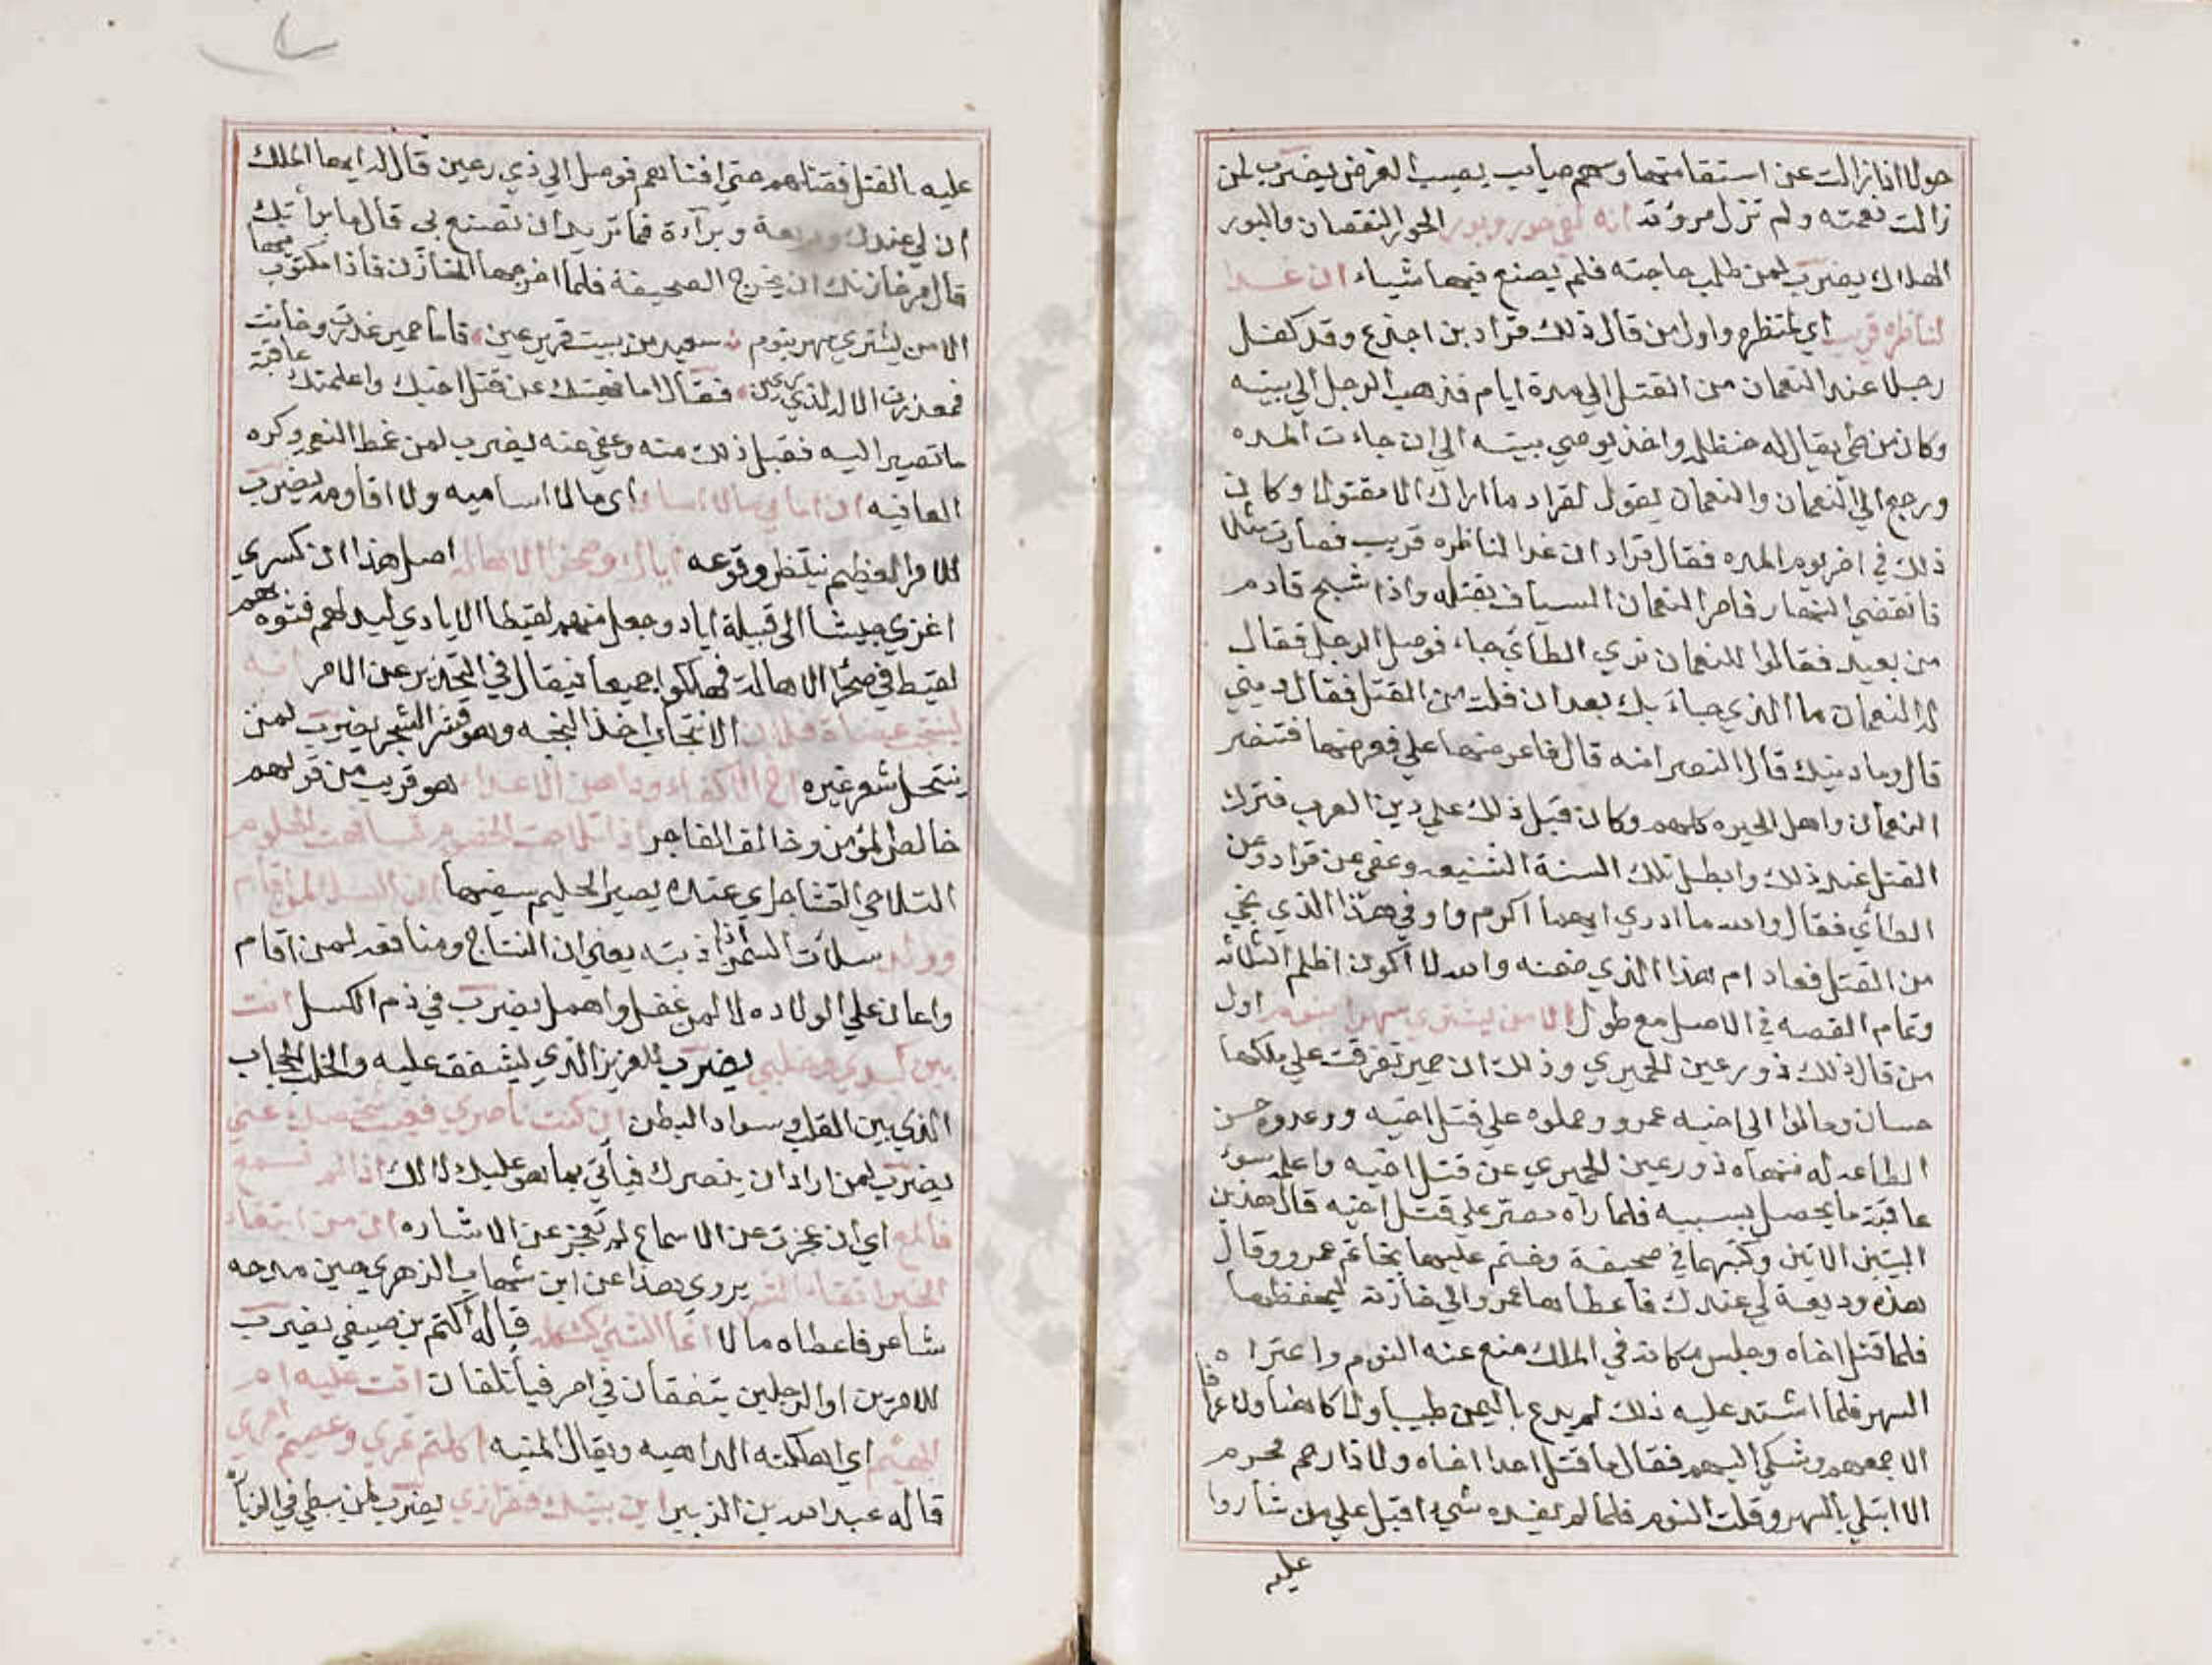 حولا اذا زالت عن استقامتها وسهم صايب يصيب الغرض يضرب لمن
زالت نعمته ولم تزل مروته انه لفي حور وبور الحور النقصان والبور
الهلاك يضرب لمن طلب حاجته فلم يصنع فيها شياء ان غدا
لناظره قريب اي لمنتظره واول من قال ذلك قراد بن اجدع وقد كفل
رجلا عند النعمان من القتل الي مدة ايام فذهب الرجل الي بيته
وكان من طي يقال له حنظله واخذ يوصي بيته الي ان جاءت المده
ورجع الي النعمان والنعمان يقول لقراد ما اراك الا مقتولا وكان
ذلك في اخر يوم المده فقال قراد ان غدا لناظره قريب فصارت مثلا
فانقضي النهار فامر النعمان السياف بقتله واذا شبح قادم
من بعيد فقالوا للنعمان نري الطائي جاء فوصل الرجل فقال
له النعمان ما الذي جاء بك بعد ان فلت من القتل فقال ديني
قال وما دينك قال النصرانيه قال فاعرضها علي فعرضها فتنصر
النعمان واهل الحيره كلهم وكان قبل ذلك علي دين العرب فترك
القتل عند ذلك وابطل تلك السنة الشنيعه وعفي عن قراد وعن
الطائي فقال والله ما ادري ايهما اكرم واوفي هذا الذي نجي
من القتل فعاد ام هذا الذي ضمنه والله لا اكون اظلم الثلاثه
وتمام القصه في الاصل مع طول الا من يشتري سهرا بنوم اول
من قال ذلك ذو رعين الحميري وذلك ان حمير تفرقت علي ملكها
حسان ومالوا الي اخيه عمرو وحملوه علي قتل اخيه ووعدوه حسن
الطاعه له فنهاه ذو رعين الحميري عن قتل اخيه واعلمه سوء
عاقبة ما يحصل بسببه فلما راه مصر علي قتل اخيه قال هذين
البيتين الاتين وكتبهما في صحيفة وختم عليهما بخاتم عمرو وقال
هذه وديعة لي عندك فاعطاها عمرو الي خازنه ليحفظها
فلما قتل اخاه وجلس مكانه في الملك منع عنه النوم واعتراه
السهر فلما اشتد عليه ذلك لم يدع باليمن طبيبا ولا كاهنا ولا عرافا
الا جمعهم وشكي اليهم فقال ما قتل احدا اخاه ولا ذا رحم محرم
الا ابتلي بالسهر وقلت النوم فلما لم يفيده شيء اقبل علي من شاروا
عليه
عليه بالقتل فقتلهم حتي افناهم فوصل الي ذي رعين قال له ايها الملك
ان لي عندك وديعة وبراءة فما تريد ان تصنع بي قال ما براتك
قال مر خازنك ان يخرج الصحيفة فلما اخرجها الخازن فاذا مكتوب فيها
الا من يشتري سهر بنوم سعيد من يبيت قرير عين فاما حمير غدرت وخانت
فمعذرة الاله لذي رعين فقال اما نهيتك عن قتل اخيك واعلمتك عاقبة
ما تصير اليه فقبل ذلك منه وعفي عنه يضرب لمن غمط النعمه وكره
العافيه اي ما لا اساميه ولا اقاومه يضرب
للامر العظيم ينتظر وقوعه اياك وصحرا الاهاله اصل هذا ان كسري
اغزي جيشا الي قبيلة اياد وجعل منهم لقيطا الايادي ليدلهم فتوه بهم
لقيط في صحرا الاهالة فهلكوا جميعا فيقال في التحذير عن الامر انه
لينتجب عضاة فلان الانتجاب اخذ النجبه وهو قشر الشجر يضرب لمن
ينتحل شعر غيره اخ الاكفاء وداهن الاعداء هو قريب من قولهم
خالط المؤمن وخالق الفاجر اذا تلاحت الخصوم تسافهت الحلوم
التلاحي التشاجر اي عنده يصير الحليم سفيها ان السلا لمن اقام
وولد سلات السمن اذا ذبته يعني ان النتاج ومنافعه لمن اقام
واعان علي الولاده لا لمن غفل واهمل يضرب في ذم الكسل انت
بين كبدي وخلبي يضرب للعزيز الذي يشفق عليه والخلب الحجاب
الذي بين القلب وسواد البطن ان كنت ناصري فغيب شخصك عني
يضرب لمن اراد ان ينصرك فيأتي بما هو عليك لا لك اذا لم تسمع
فالمع اي ان عجزت عن الاسماع لم تعجز عن الاشاره ان من ابتغاء
الخير اتقاء الشر يروي هذا عن ابن شهاب الزهري حين مدحه
شاعر فاعطاه مالا انما الشيء كشكله قاله اكثم بن صيفي يضرب
للامرين او الرجلين يتفقان في امر فيأتلفان اتت عليه ام
اللهيم اي اهلكته الداهيه ويقال المنيه اكلتم تمري وعصيتم امري
قاله عبد الله بن الزبير اين بيتك فتزاري يضرب لمن يبطي في الزيارة